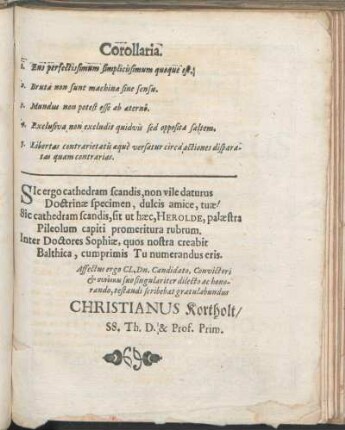 Corollaria.
1. Ens perfectissimum simplicissimum quoque est.
2. Bruta non sunt machina sine sensu.
3. Mundus non potest esse ab aterno.
4. Exclusiva non excludit quidvis sed opposita saltem.
5. Libertas contrarietatis aquè versatur circa actiones dispara-
tas quam contrarias.
SIc ergo cathedram scandis, non vile daturus
Doctrinæ specimen, dulcis amice, tuæ!
Sic cathedram scandis, sit ut hæc, HEROLDE, palæstra
Pileolum capiti promeritura rubrum.
Inter Doctores Sophiæ, quos nostra creabit
Balthica, cumprimis Tu numerandus eris.
Affectus ergo Cl. Dn. Candidato, Convictori
& vicino suo singulariter dilecto ac hono-
rando, testandi scribebat gratulabundus
CHRISTIANUS Kortholt/
SS. Th. D. & Prof. Prim.